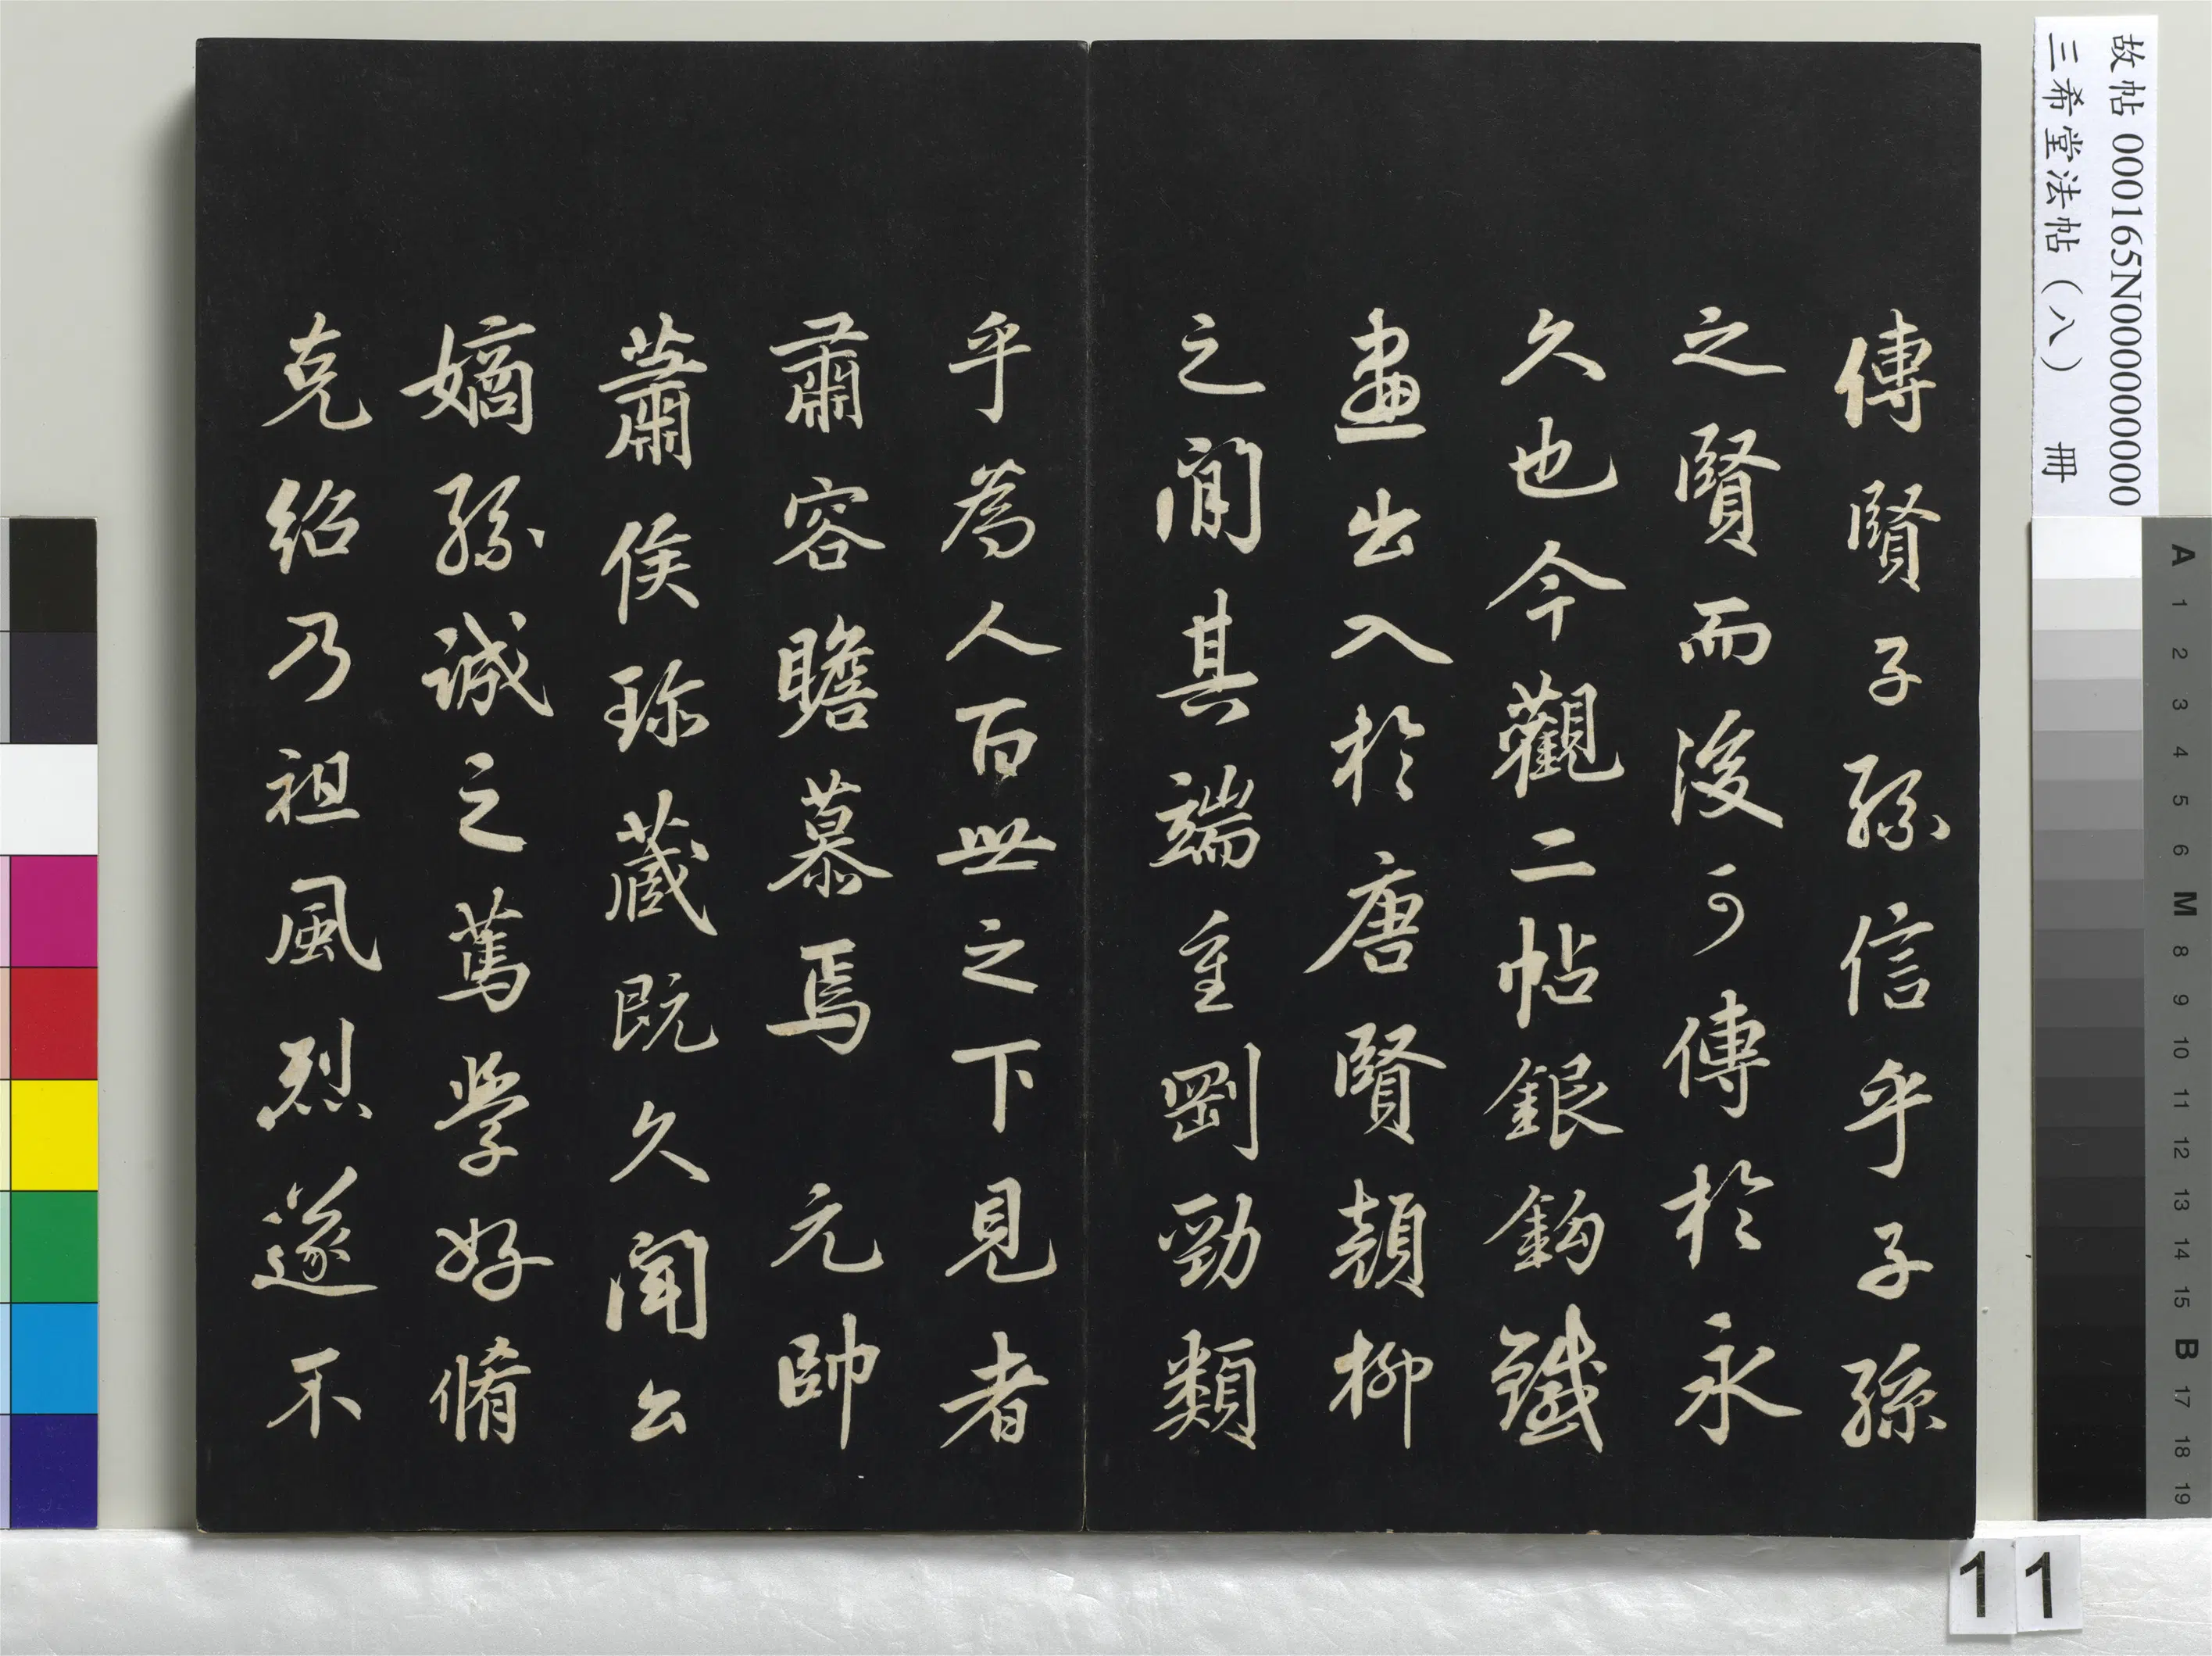 傳賢子孫信乎子孫
之賢而後可傳於永
久也今觀二帖銀鈎鐵
畫出入於唐賢顏柳
之間其端重剛勁類
乎為人百世之下見者
肅容瞻慕焉 元帥
蕭侯珎藏既久聞公
嫡孫誠之篤學好脩
克紹乃祖風烈遂不
故帖 000165N000000000
三希堂法帖(八) 冊
A 1 2 3 4 5 6 M 8 9 10 11 12 13 14 15 B 17 18 19
11